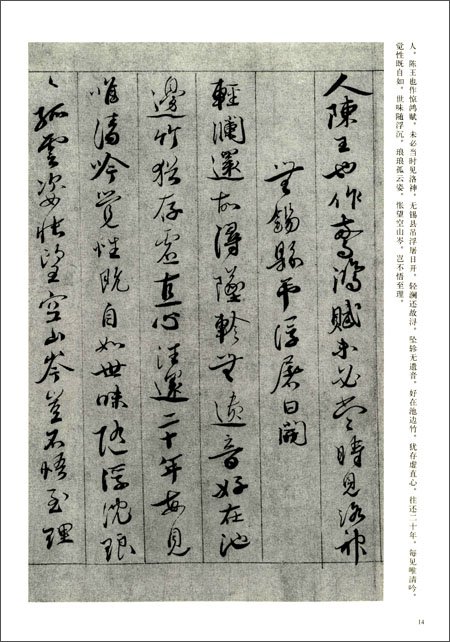 人，陈王也作惊鸿赋，未必当时见洛神，无锡县吊浮屠日开，轻澜还故浔，坠轸无遗音，好在池边竹，犹存虚直心，往还二十年，每见唯清吟，
觉性既自如，世味随浮沉，琅琅孤云姿，怅望空山岑，岂不悟至理。
人陳王也作驚鴻賦未必當時見洛神
無錫縣弔浮屠日開
輕瀾還故潯墜軫無遺音好在池
邊竹猶存虛直心往還二十年每見
唯清吟覺性既自如世味隨浮沈琅
々孤雲姿悵望空山岑豈不悟至理
14